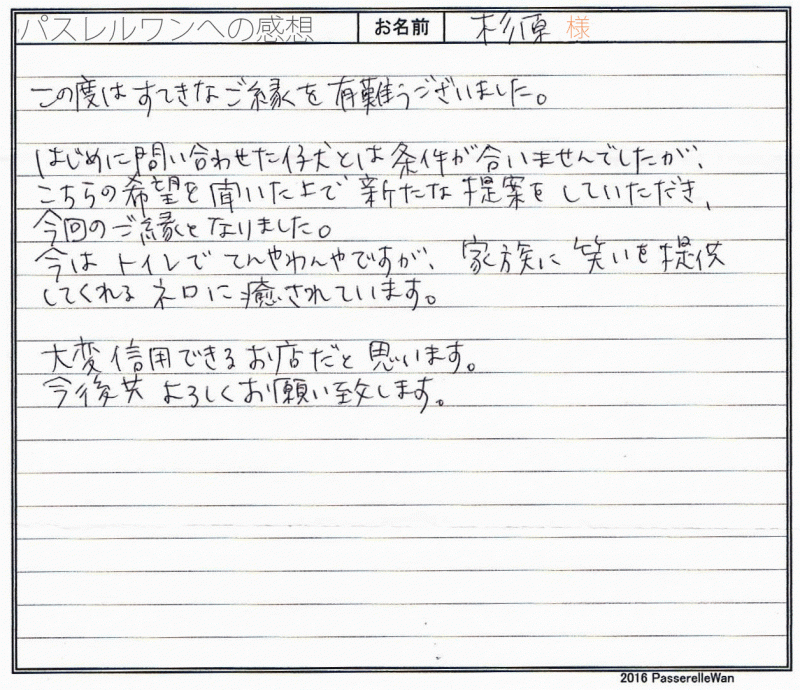 パスレルワンへの感想 お名前 杉原 様
この度はすてきなご縁を有難うございました。
はじめに問い合わせた仔犬とは条件が合いませんでしたが、
こちらの希望を聞いた上で新たな提案をしていただき、
今回のご縁となりました。
今はトイレでてんやわんやですが、家族に笑いを提供
してくれるネロに癒されています。
大変信用できるお店だと思います。
今後共よろしくお願い致します。
2016 PasserelleWan